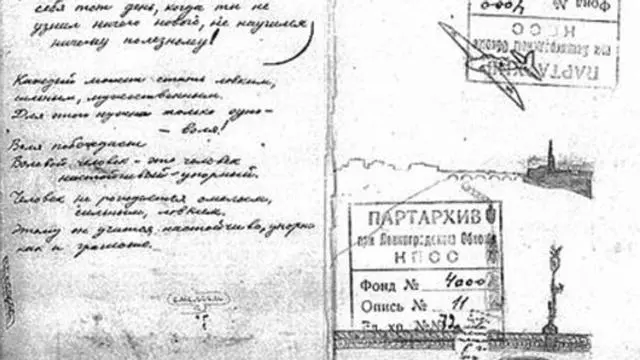 себя тот день, когда ты не
узнал ничего нового, не научился
ничему полезному!
Каждый может стать ловким,
сильным, мужественным.
Для этого нужна только одно -
- воля!
Воля побеждает
Волевой человек - это человек
настойчивый - упорный.
Человек не рождается смелым,
сильным, ловким.
Этому он учится настойчиво, упорно
как и грамоте.
ПАРТАРХИВ
при Ленинградском
КПСС
Фонд № 4000
ПАРТАРХИВ
при Ленинградском Обкоме
КПСС
Фонд № 4000
Опись № 11
Ед. хр. №№ 72